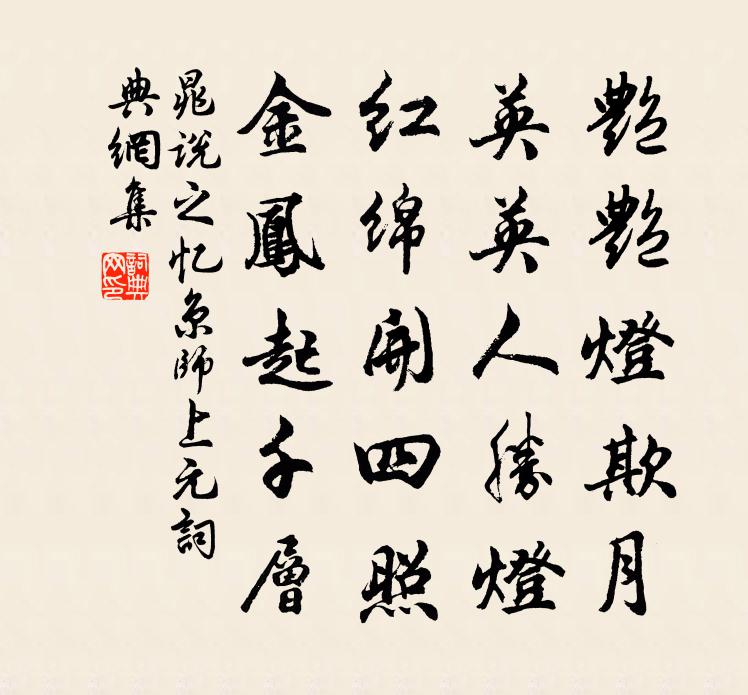 艷艷燈欺月
英英人勝燈
红绵開四照
金鳳起千層
晁说之忆京師上元詞
典網集
詞典网印